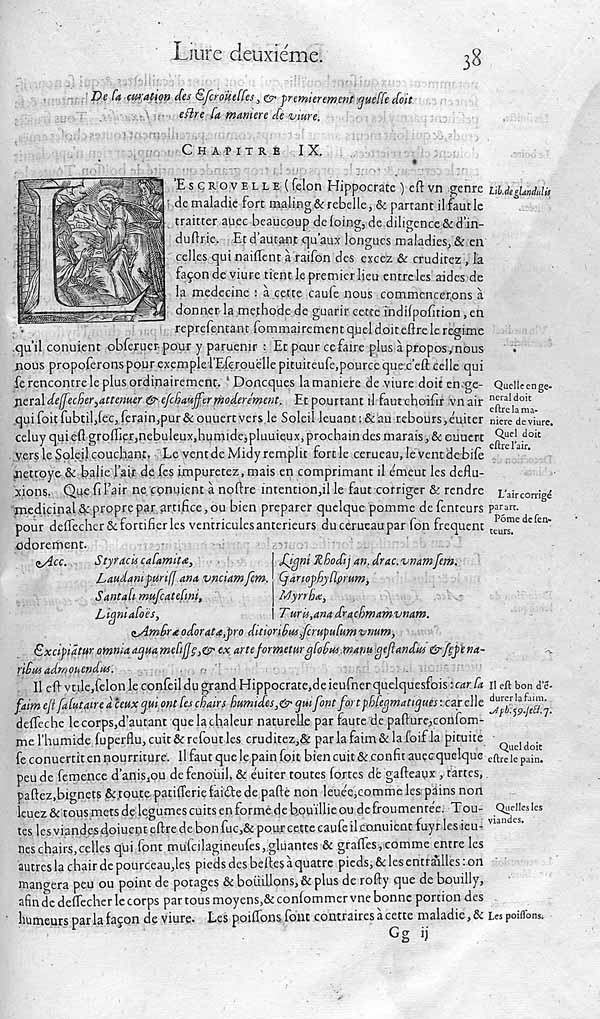 Liure deuxiéme. 38
De la curation des Escroüelles, & premierement quelle doit
estre la maniere de viure.
CHAPITRE IX.
L'ESCROVELLE (selon Hippocrate) est vn genre
de maladie fort maling & rebelle, & partant il faut le
traitter auec beaucoup de soing, de diligence & d'in-
dustrie. Et d'autant qu'aux longues maladies, & en
celles qui naissent à raison des excez & cruditez, la
façon de viure tient le premier lieu entre les aides de
la medecine : à cette cause nous commencerons à
donner la methode de guarir cette indisposition, en
representant sommairement quel doit estre le regime
qu'il conuient obseruer pour y paruenir : Et pour ce faire plus à propos, nous
nous proposerons pour exemple l'Escroüelle pituiteuse, pource que c'est celle qui
se rencontre le plus ordinairement. Doncques la maniere de viure doit en ge-
neral dessecher, attenuer & eschauffer moderément. Et pourtant il faut choisir vn air
qui soit subtil, sec, serain, pur & ouuert vers le Soleil leuant : & au rebours, éuiter
celuy qui est grossier, nebuleux, humide, pluuieux, prochain des marais, & ouuert
vers le Soleil couchant. Le vent de Midy remplit fort le cerueau, le vent de bise
nettoye & balie l'air de ses impuretez, mais en comprimant il émeut les deflu-
xions. Que si l'air ne conuient à nostre intention, il le faut corriger & rendre
medicinal & propre par artifice, ou bien preparer quelque pomme de senteurs
pour dessecher & fortifier les ventricules anterieurs du cerueau par son frequent
odorement.
Acc. Styracis calamitæ,
Laudani puriss ana vnciam sem.
Santali muscatelini,
Ligni aloës,
Ligni Rhodij an. drac. vnam sem.
Gariophyllorum,
Myrrhæ,
Turis, ana drachmam vnam.
Ambræ odoratæ, pro ditioribus, scrupulum vnum,
Excipiatur omnia aqua melissę, & ex arte formetur globus manu gestandus & sępe na-
ribus admouendus.
Il est vtile, selon le conseil du grand Hippocrate, de ieusner quelquesfois : car la
faim est salutaire à ceux qui ont les chairs humides, & qui sont fort phlegmatiques : car elle
desseche le corps, d'autant que la chaleur naturelle par faute de pasture, consom-
me l'humide superflu, cuit & resout les cruditez, & par la faim & la soif la pituite
se conuertit en nourriture. Il faut que le pain soit bien cuit & confit auec quelque
peu de semence d'anis, ou de fenoüil, & éuiter toutes sortes de gasteaux, tartes,
pastez, bignets & toute patisserie faicte de paste non leuée, comme les pains non
leuez & tous mets de legumes cuits en forme de boüillie ou de froumentée. Tou-
tes les viandes doiuent estre de bon suc, & pour cette cause il conuient fuyr les ieu-
nes chairs, celles qui sont muscilagineuses, gluantes & grasses, comme entre les
autres la chair de pourceau, les pieds des bestes à quatre pieds, & les entrailles : on
mangera peu ou point de potages & boüillons, & plus de rosty que de bouilly,
afin de dessecher le corps par tous moyens, & consommer vne bonne portion des
humeurs par la façon de viure. Les poissons sont contraires à cette maladie, &
Gg ij
Lib. de glandulis
Quelle en ge-
neral doit
estre la ma-
niere de viure.
Quel doit
estre l'air.
L'air corrigé
par art.
Pōme de sen-
teurs.
Il est bon d'é-
durer la faim.
Aph. 59. sect. 7.
Quel doit
estre le pain.
Quelles les
viandes.
Les poissons.